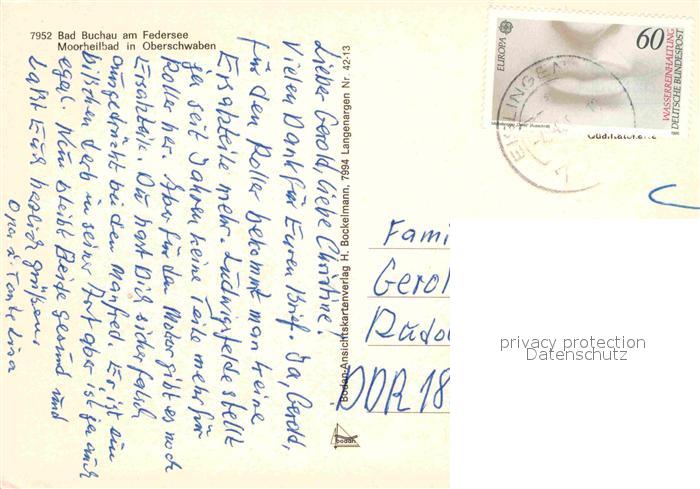 7952 Bad Buchau am Federsee
Moorheilbad in Oberschwaben
Liebe Gerold, liebe Christine!
Vielen Dank für Euren Brief. Ja, Gerold,
für den Roller bekommt man keine
Ersatzteile mehr. Ludwigsfelde stellt
ja seit Jahren keine Teile mehr für
Roller her. Aber für den Motor gibt es noch
Ersatzteile. Du hast Dich sicherlich
ausgedrückt bei den Manfred. Er ist ein
bißchen derb in seiner Art aber ist ja auch
egal. Nun bleibt Beide gesund und
laßt Euch herzlich grüßen
Opa & Tante Lisa
Boden-Ansichtskartenverlag H. Bockelmann, 7994 Langenargen Nr. 42-13
bodan
EUROPA
60
WASSERREINHALTUNG
DEUTSCHE BUNDESPOST
EISLINGEN
Fami
Gerol
Rudo
DDR 18
privacy protection
Datenschutz